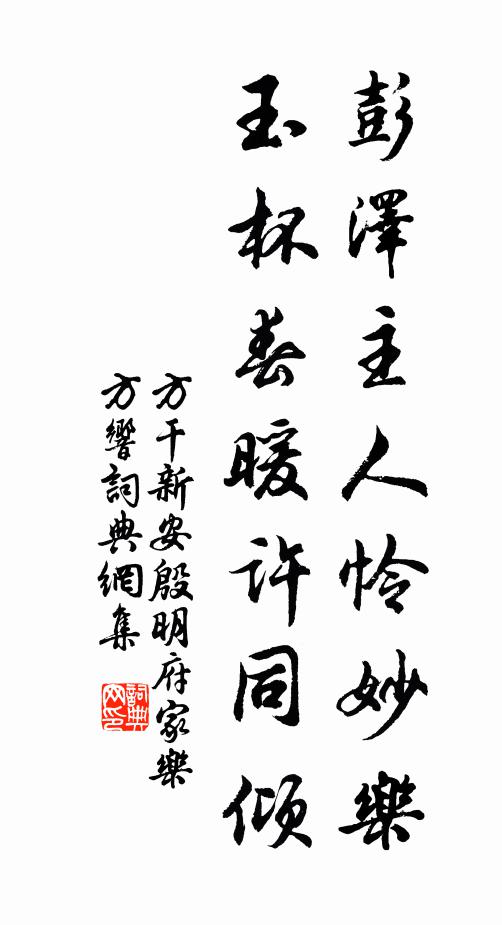 彭澤主人怜妙樂
玉杯春暖許同傾
方干新安殷明府家樂
方響詞典網集
詞典网印